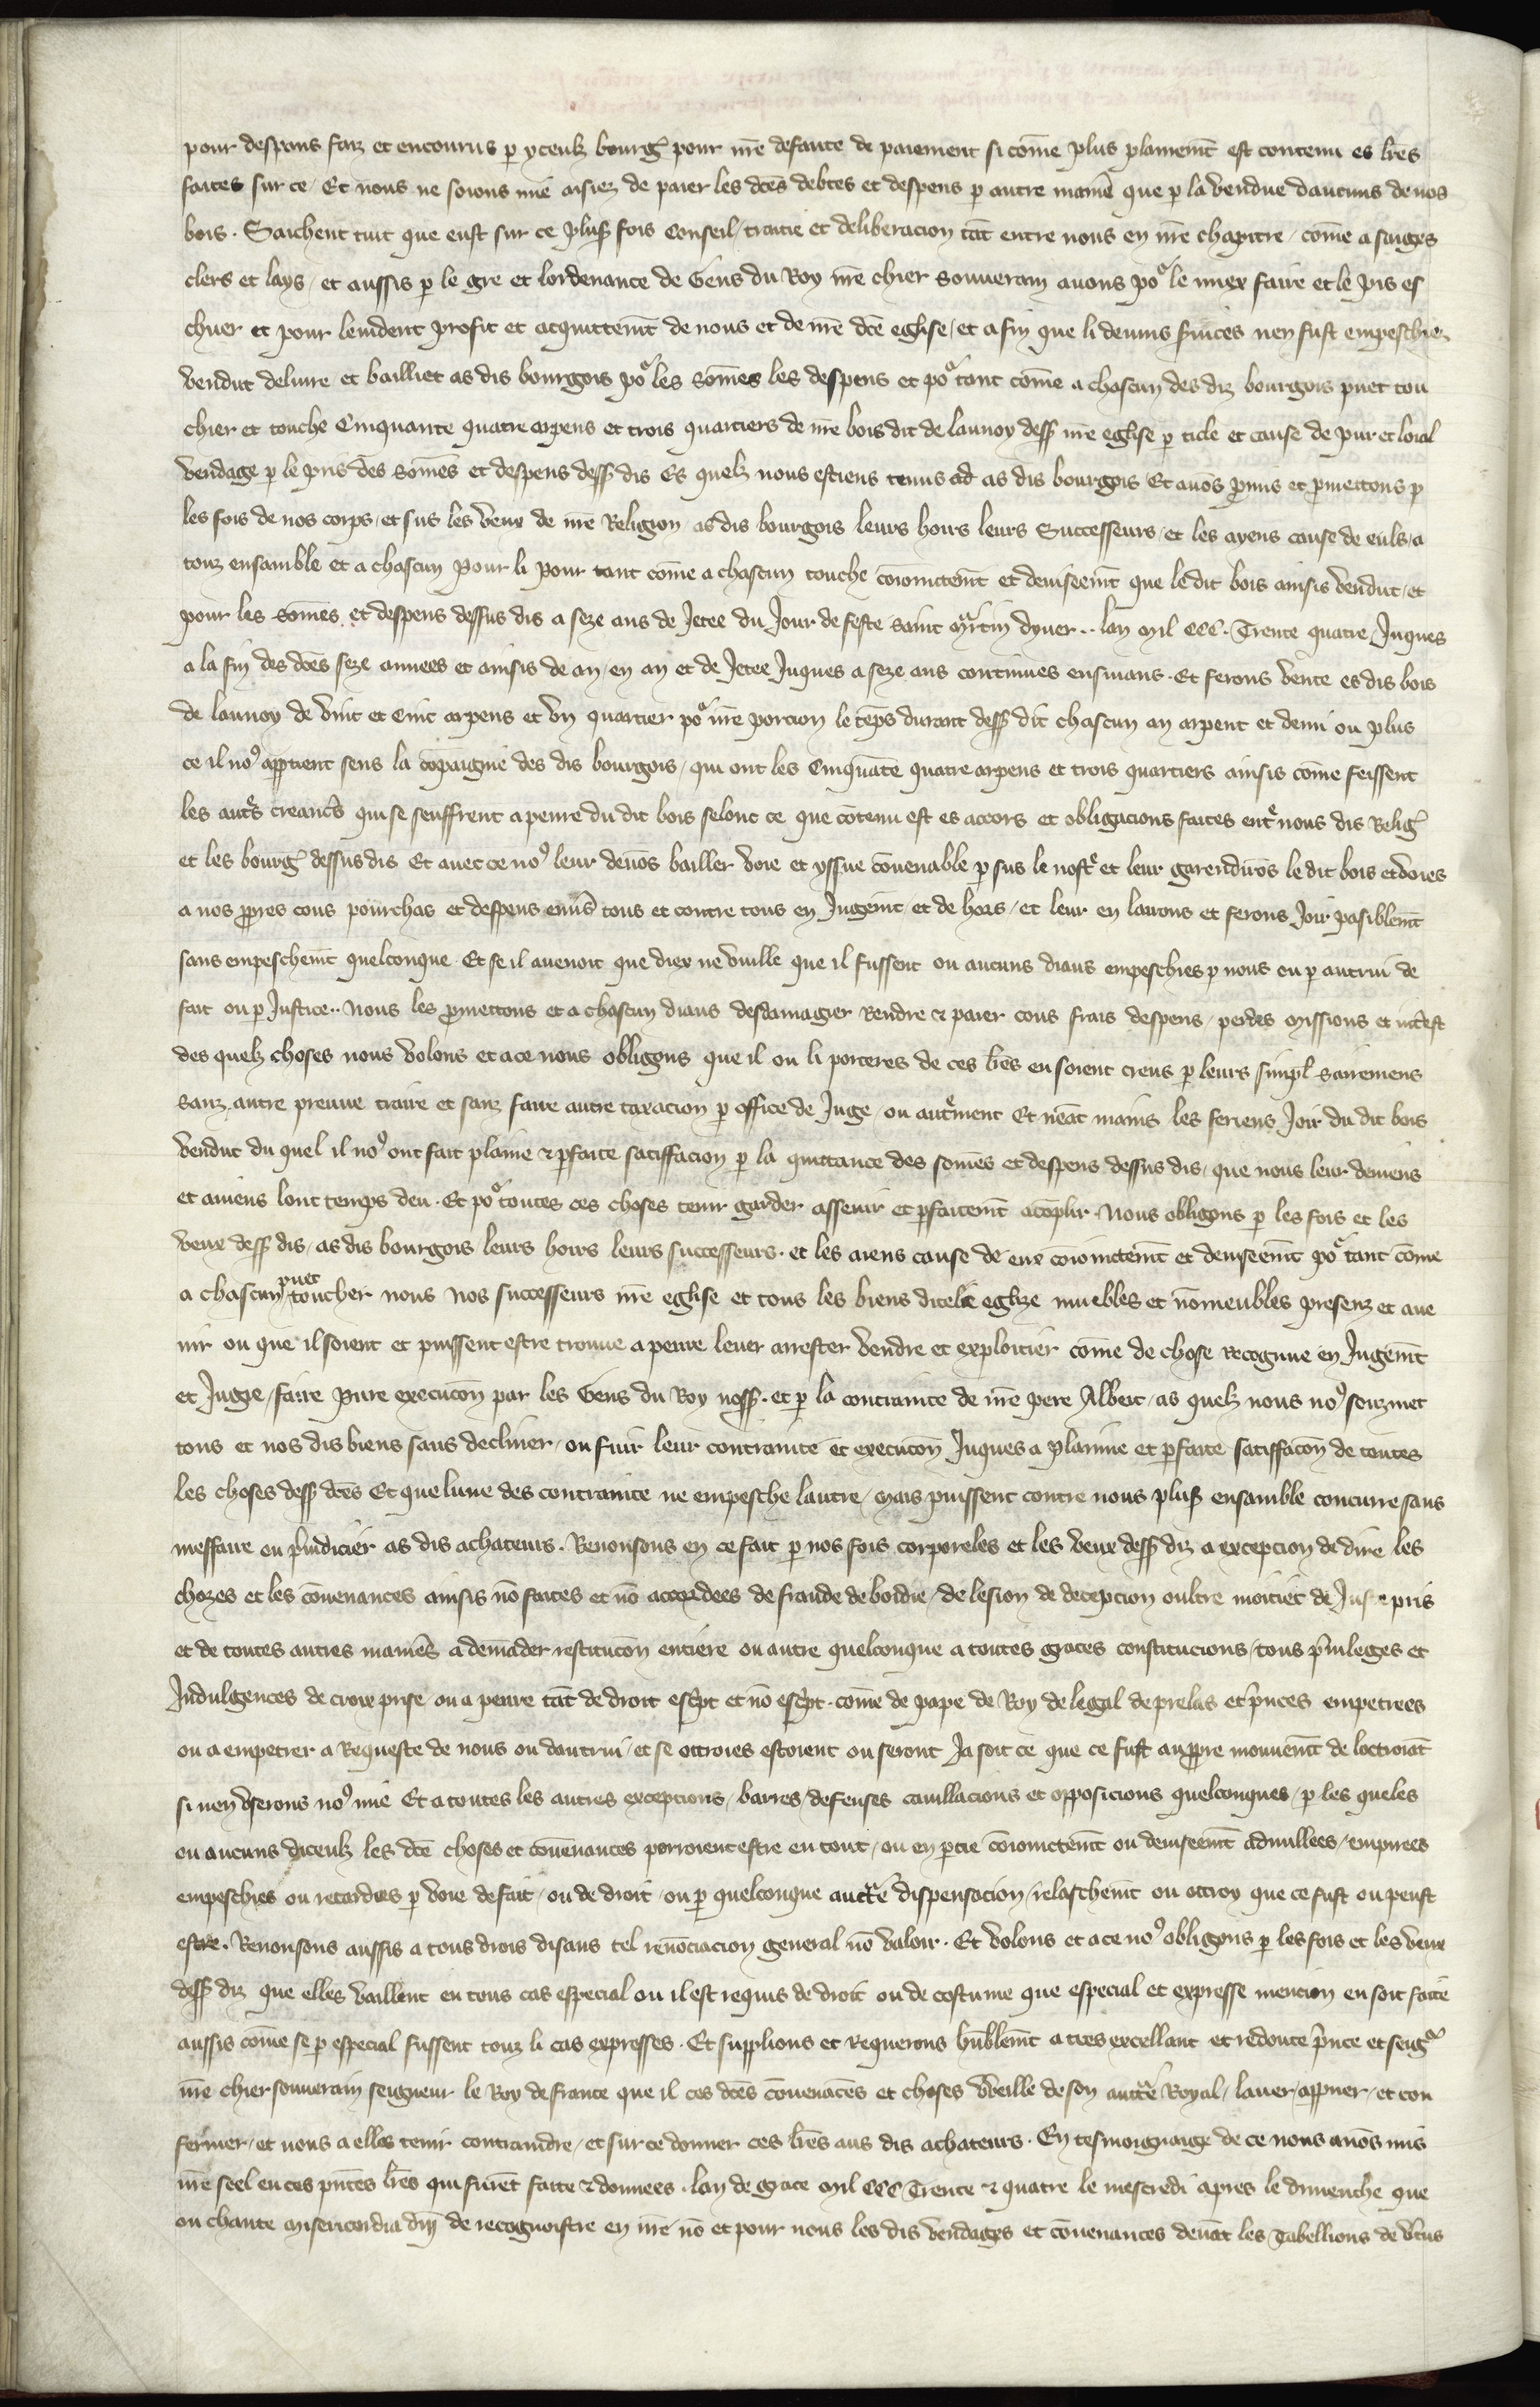 pour despens faiz et encourus p yceulz bourg' pour nr̄e defaute de paiement si com̄e plus plainem̄t est contenu es lr̄es
faites sur ce / Et nous ne soions mie aisiez de paier les dc̄es debtes et despens p autre manie͛ que p la vendue daucuns de nos
bois . Saichent tuit que eust sur ce plus̄s fois Conseil / traitie et deliberacion tāt entre nous en nr̄e chapitre / com̄e a saiges
clers et lays / et aussis p le gre et lordenance de Gens du Roy nr̄e chier souuerain auons poͬ le miex faire et le pis es
chuer et pour leuident profit et acquittem̄t de nous et de nr̄e dc̄e eglise / et a fin que li deuins s͛uices nen fust empeschiez
vendut deliure et bailliet as dis bourgois poͬ les som̄es les despens et poͬ tant com̄e a chascun des diz bourgois puet tou
chier et touche Cinquante quatre arpens et trois quartiers de nr̄e bois dit de launoy dess̄ nr̄e eglise p title et cause de pur et loial
vendage p le pris des som̄es et despens dess̄ dis Es quelz nous estiens tenus as dis bourgois Et auōs p̄mis et p̄mettons p
les fois de nos corps / et sus les veux de nr̄e Religion / as dis bourgois leurs hoirs leurs Successeurs / et les ayens cause de euls / a
touz ensamble et a chascun pour li pour tant com̄e a chascun touche cōioinctem̄t et deuiseem̄t que le dit bois ainsis vendut / et
pour les som̄es et despens dessus dis a seze ans de Jetee du Jour de feste saint mͣrtin dyuer .. lan mil CCC . Trente quatre Juques
a la fin des dc̄es seze annees et ainsis de an / en an et de Jetee Juques a seze ans continues ensiuans . Et ferons vente es dis bois
de launoy de vint et Cinc arpens et vn quartier poͬ nr̄e porcion le tēps durant dess̄ dit chascun an arpent et demi ou plus
ce il noꝰ app̄tient sens la cōpaignie des dis bourgois / qui ont les Cinquāte quatre arpens et trois quartiers ainsis com̄e feissent
les aut͛s creanc͛s qui se seuffrent a penre du dit bois selonc ce que cōtenu est es accors et obligacions faites ent͛ nous dis Relig'
et les bourg' dessus dis Et auec ce noꝰ leur deuōs bailler voie et yssue cōuenable p sus le nost͛ et leur garendirōs le dit bois et voies
a nos pp̄res cous pourchas et despens enu͛s tous et contre tous en Jugem̄t / et de hors / et leur en lairons et ferons Joir pasiblem̄t
sans empeschem̄t quelconque . Et se il auenoit que diex ne vuille que il fussent ou aucuns diaus empeschies p nous ou p autrui de
fait ou p Justice .. Nous les p̄mettons et a chascun diaus desdamagier Rendre & paier cous frais despens / perdes missions et int͛est
des quelz choses nous volons et a ce nous obligons que il ou li porteres de ces lr̄es en soient creus p leurs simpl' sairemens
sanz autre preuue traire et sanz faire autre taxacion p office de Juge / ou aut͛ment Et neāt mains les feriens Joir du dit bois
vendut du quel il noꝰ ont fait plaine & p̄faite satiffacion p la quittance des som̄es et despens dessus dis / que nous leur deuiens
et auiens lonc temps deu . Et poͬ toutes ces choses tenir garder asseuir et p̄faitem̄t acōplir . Nous obligons p les fois et les
veux dess̄ dis / as dis bourgois leurs hoirs leurs successeurs . et les aiens cause de eux cōioinctem̄t et deuiseem̄t poͬ tant cōme
a chascun puet toucher nous nos successeurs nr̄e eglise et tous les biens dicele eglize muebles et nōmeubles presenz et aue
nir ou que il soient et puissent estre trouue a penre leuer arrester vendre et exploitier com̄e de chose recogneue en Jugem̄t
et Jugie / faire pure execucōn par les Gens du Roy noss̄ . et p la contrainte de nr̄e pere Albert / as quelz nous noꝰ souzmet
tons et nos dis biens sans decliner / ou fuir leur contrainte et execucōn Juques a plainne et p̄faite satiffacōn de toutes
les choses dess̄ dc̄es Et que lune des contrainte ne empesche lautre / Mais puissent contre nous plus̄s ensamble concurre sans
meffaire ou p͛iudicier as dis achateurs . Renonsons en ce fait p nos fois corporeles et les veux dess̄ diz a exception de dire les
chozes et les cōuenances ainsis nō faites et nō accordees de fraude de boidie / de lesion de decepcion oultre moitiet de Juste pris
et de toutes autres manie͛s a demāder restitucōn entiere ou autre quelconque a toutes graces constitucions / tous p͛uileges et
Indulgences de croix prise ou a penre tāt de droit esc͛pt et nō esc͛pt . com̄e de pape de Roy de legal de prelas et p͛nces empetrees
ou a empetrer a Requeste de nous ou dautrui / et se ottroies estoient ou seront Ja soit ce que ce fust au pp̄re mouuem̄t de loctroiāt
si nen vserons noꝰ mie Et a toutes les autres exceptions / barres / defenses cauillacions et opposicions quelconques / p les queles
ou aucuns diceulz les dc̄e choses et couuenances porroient estre en tout / ou en p̄tie cōioinctem̄t ou deuiseem̄t adnullees / empirees
empeschies ou retardees p voie de fait / ou de droit / ou p quelconque auct͛e dispensacion / relaschem̄t ou ottroy que ce fust ou peust
estre . Renonsons aussis a tous drois disans tel renōciacion general nō valoir . Et volons et a ce noꝰ obligons p les fois et les veux
dess̄ diz que elles vaillent en tous cas especial ou il est requis de droit ou de costume que especial et expresse mencion en soit faite
aussis com̄e se p especial fussent touz li cas expresses . Et supplions et Requerons hūblem̄t a tres excellant et redoute p͛nce et seigͬ
nr̄e chier souuerain seigneur le Roy de france que il ces dc̄es cōuenāces et choses vueille de son auct͛e Royal / lauer / app̄uer / et con
fermer / et nous a elles tenir contraindre / et sur ce donner ces lr̄es aus dis achateurs . En tesmoignaige de ce nous auōs mis
nr̄e seel en ces pn̄tes lr̄es qui furēt faite & donnees . lan de grace mil CCC Trente & quatre le mescredi apres le dimenche que
on chante misericordia dn̄i de recognoistre en nr̄e nō et pour nous les dis vendages et cōuenances deuāt les Tabellions de v͛tus